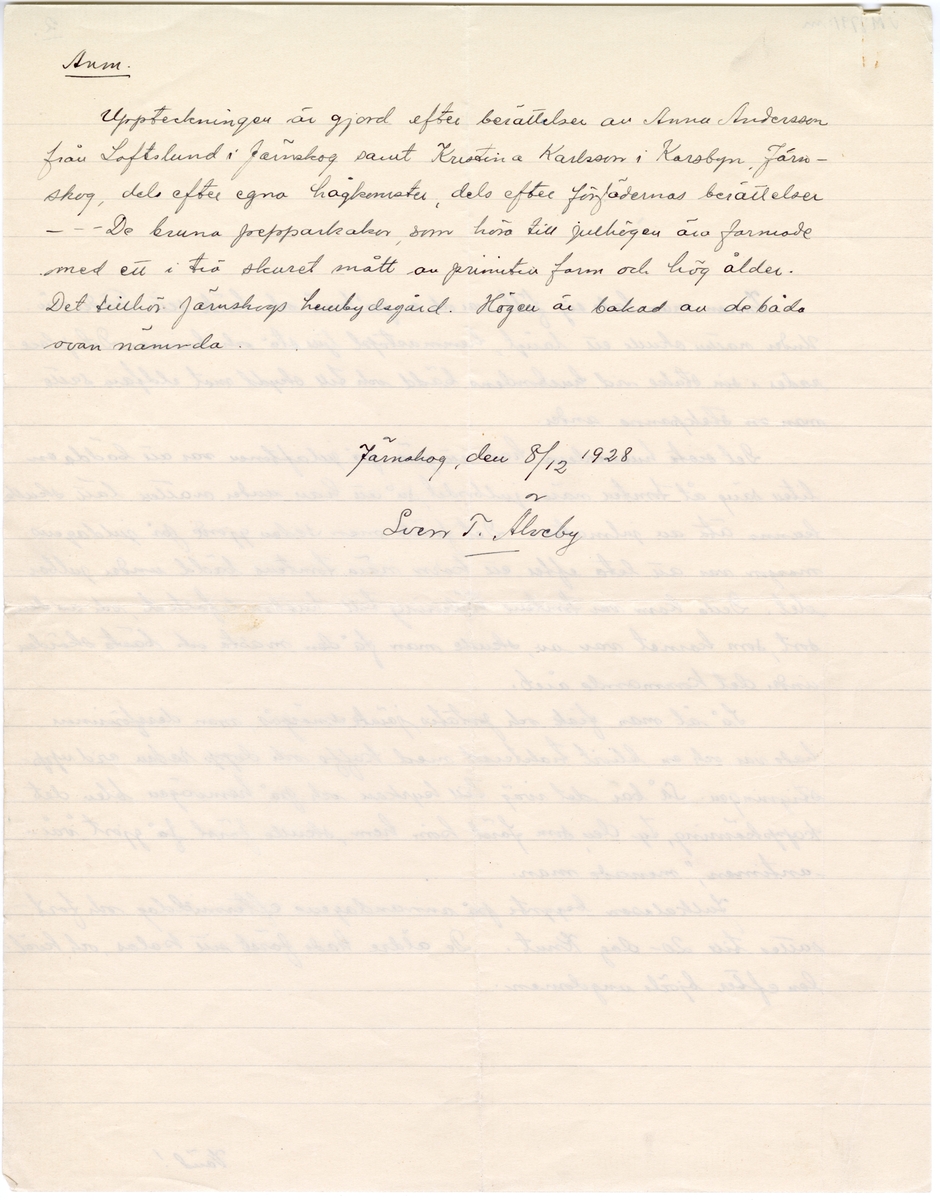 Anm.
Uppteckningen är gjord efter berättelser av Anna Andersson
från Loftslund i Järnskog samt Kristina Karlsson i Karsbyn, Järn-
skog, dels efter egna hågkomster, dels efter förfädernas berättelser
- - - De bruna pepparkakor, som höra till julhögen äro formade
med ett i trä skuret mått av primitiv form och hög ålder.
Det tillhör Järnskogs hembydsgård. Högen är bakad av de båda
ovan nämnda.
Järnskog, den 8/12 1928
Sven T. Ålveby